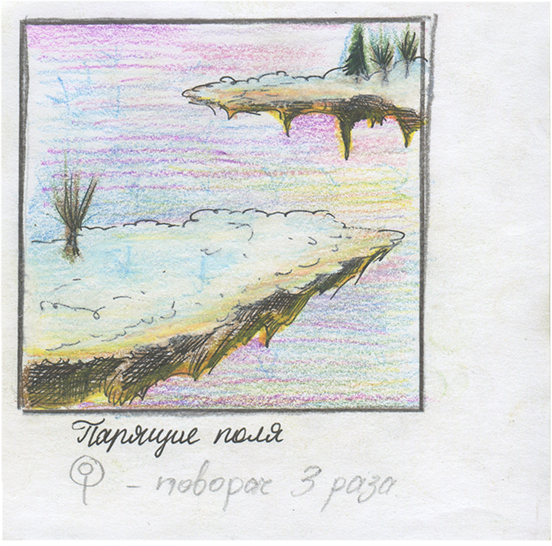 Парящие поля
- поворот 3 раза